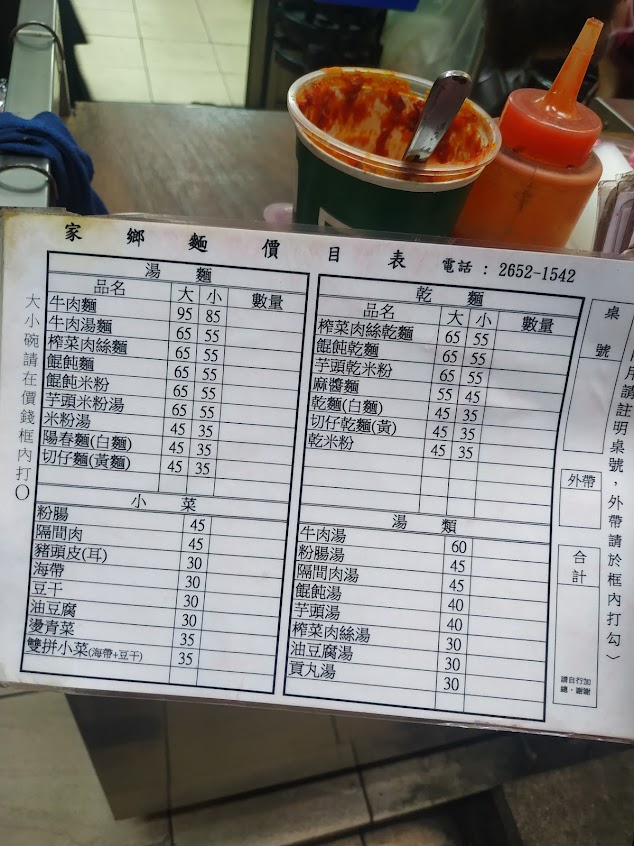 家鄉麵價目表 電話：2652-1542
大小碗請在價錢框內打○
湯麵
品名 大 小 數量
牛肉麵 95 85
牛肉湯麵 65 55
榨菜肉絲麵 65 55
餛飩麵 65 55
餛飩米粉 65 55
芋頭米粉湯 65 55
米粉湯 45 35
陽春麵(白麵) 45 35
切仔麵(黃麵) 45 35
小菜
粉腸 45
隔間肉 45
豬頭皮(耳) 30
海帶 30
豆干 30
油豆腐 30
燙青菜 35
雙拼小菜(海帶+豆干) 35
乾麵
品名 大 小 數量
榨菜肉絲乾麵 65 55
餛飩乾麵 65 55
芋頭乾米粉 65 55
麻醬麵 55 45
乾麵(白麵) 45 35
切仔乾麵(黃) 45 35
乾米粉 45 35
湯類
牛肉湯 60
粉腸湯 45
隔間肉湯 45
餛飩湯 40
芋頭湯 40
榨菜肉絲湯 30
油豆腐湯 30
貢丸湯 30
桌號
外帶
合計
請自行加
總，謝謝
用請註明桌號，外帶請於框內打勾